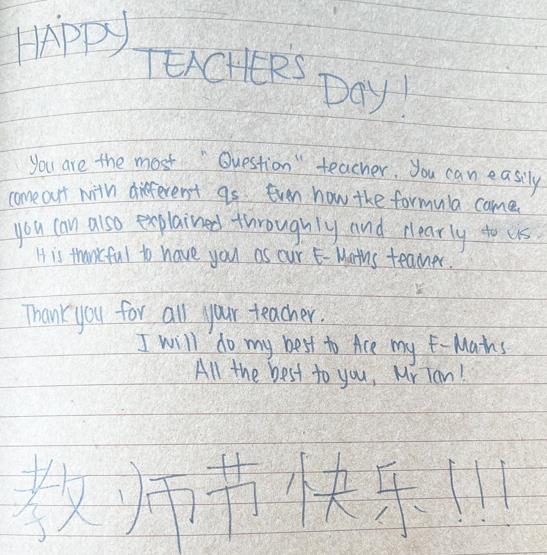 HAPPY
TEACHER'S
DAY!
You are the most "Question" teacher. You can easily
come out with different qs. Even how the formula came,
you can also explained throughly and clearly to us.
It is thankful to have you as our E-Maths teacher.
Thank you for all your teacher.
I will do my best to Ace my E-Maths
All the best to you, Mr Tan!
教师节快乐!!!